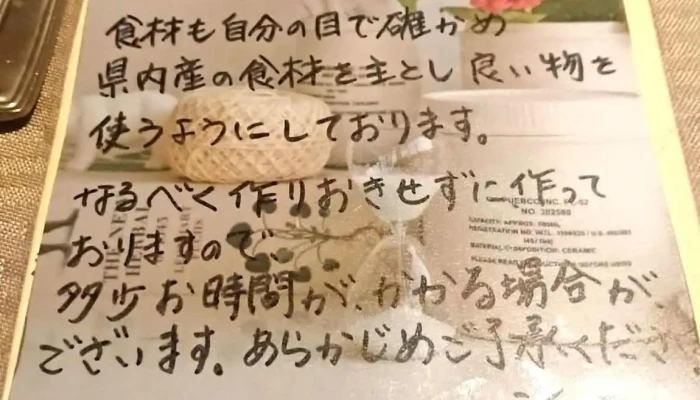 食材も自分の目で確かめ
県内産の食材を主とし良い物を
使うようにしております。
なるべく作りおきせずに作って
おりますので、
多少お時間が、かかる場合が、
ございます。あらかじめご了承くださ
NO. 302580
MATERIAL COMPOSITION: CERAMIC